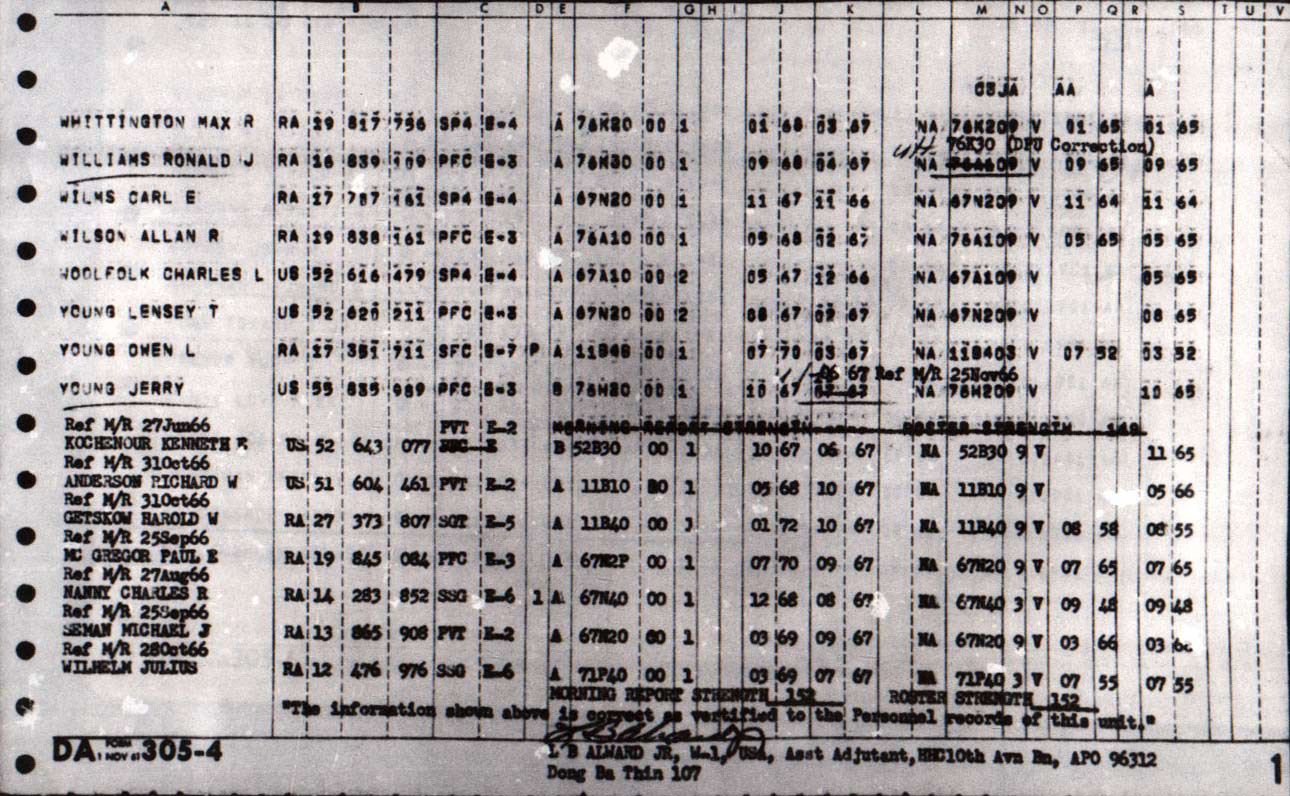 A B C D E F G H I J K L M N O P Q R S T U V
AA A
WHITTINGTON MAX R RA 19 817 756 SP4 E-4 A 76K20 00 1 01 68 03 67 NA 76K209 V 01 65 01 65
76K30 (DPU Correction)
WILLIAMS RONALD J RA 16 839 109 PFC E-3 A 76K30 00 1 09 68 04 67 NA 76A609 V 09 65 09 65
WILMS CARL E RA 17 787 161 SP4 E-4 A 67N20 00 1 11 67 11 66 NA 67N209 V 11 64 11 64
WILSON ALLAN R RA 19 838 161 PFC E-3 A 76A10 00 1 05 68 02 67 NA 76A109 V 05 65 05 65
WOOLFOLK CHARLES L US 52 616 479 SP4 E-4 A 67A10 00 2 05 67 12 66 NA 67A109 V 05 65
YOUNG LENSEY T US 52 620 211 PFC E-3 A 67N20 00 2 08 67 07 67 NA 67N209 V 08 65
YOUNG OWEN L RA 17 351 711 SFC E-7 P A 11B4B 00 1 07 70 03 67 NA 11B403 V 07 52 03 52
06 67 Ref M/R 25Nov66
YOUNG JERRY US 55 835 989 PFC E-3 B 76W20 00 1 10 67 07 67 NA 76W209 V 10 65
Ref M/R 27Jun66 PVT E-2 MORNING REPORT STRENGTH ROSTER STRENGTH 149
KOCHENOUR KENNETH E US 52 643 077 B 52B30 00 1 10 67 06 67 NA 52B30 9 V 11 65
Ref M/R 31Oct66
ANDERSON RICHARD W US 51 604 461 PVT E-2 A 11B10 00 1 05 68 10 67 NA 11B10 9 V 05 66
Ref M/R 31Oct66
GETSKOW HAROLD W RA 27 373 807 SGT E-5 A 11B40 00 1 01 72 10 67 NA 11B40 9 V 08 58 08 55
Ref M/R 25Sep66
MC GREGOR PAUL E RA 19 845 084 PFC E-3 A 67N2P 00 1 07 70 09 67 NA 67N20 9 V 07 65 07 65
Ref M/R 27Aug66
NANNY CHARLES R RA 14 283 852 SSG E-6 1 A 67N40 00 1 12 68 08 67 NA 67N40 3 V 09 48 09 48
Ref M/R 25Sep66
SEMAN MICHAEL J RA 13 865 908 PVT E-2 A 67N20 00 1 03 69 09 67 NA 67N20 9 V 03 66 03 66
Ref M/R 28Oct66
WILHELM JULIUS RA 12 476 976 SSG E-6 A 71P40 00 1 03 69 07 67 NA 71P40 3 V 07 55 07 55
MORNING REPORT STRENGTH 152 ROSTER STRENGTH 152
"The information shown above is correct as vertified to the Personnel records of this unit."
DA FORM 1 NOV 61 305-4
L B ALWARD JR, W-1, USA, Asst Adjutant, HHC10th Avn Bn, APO 96312
Dong Ba Thin 107
1